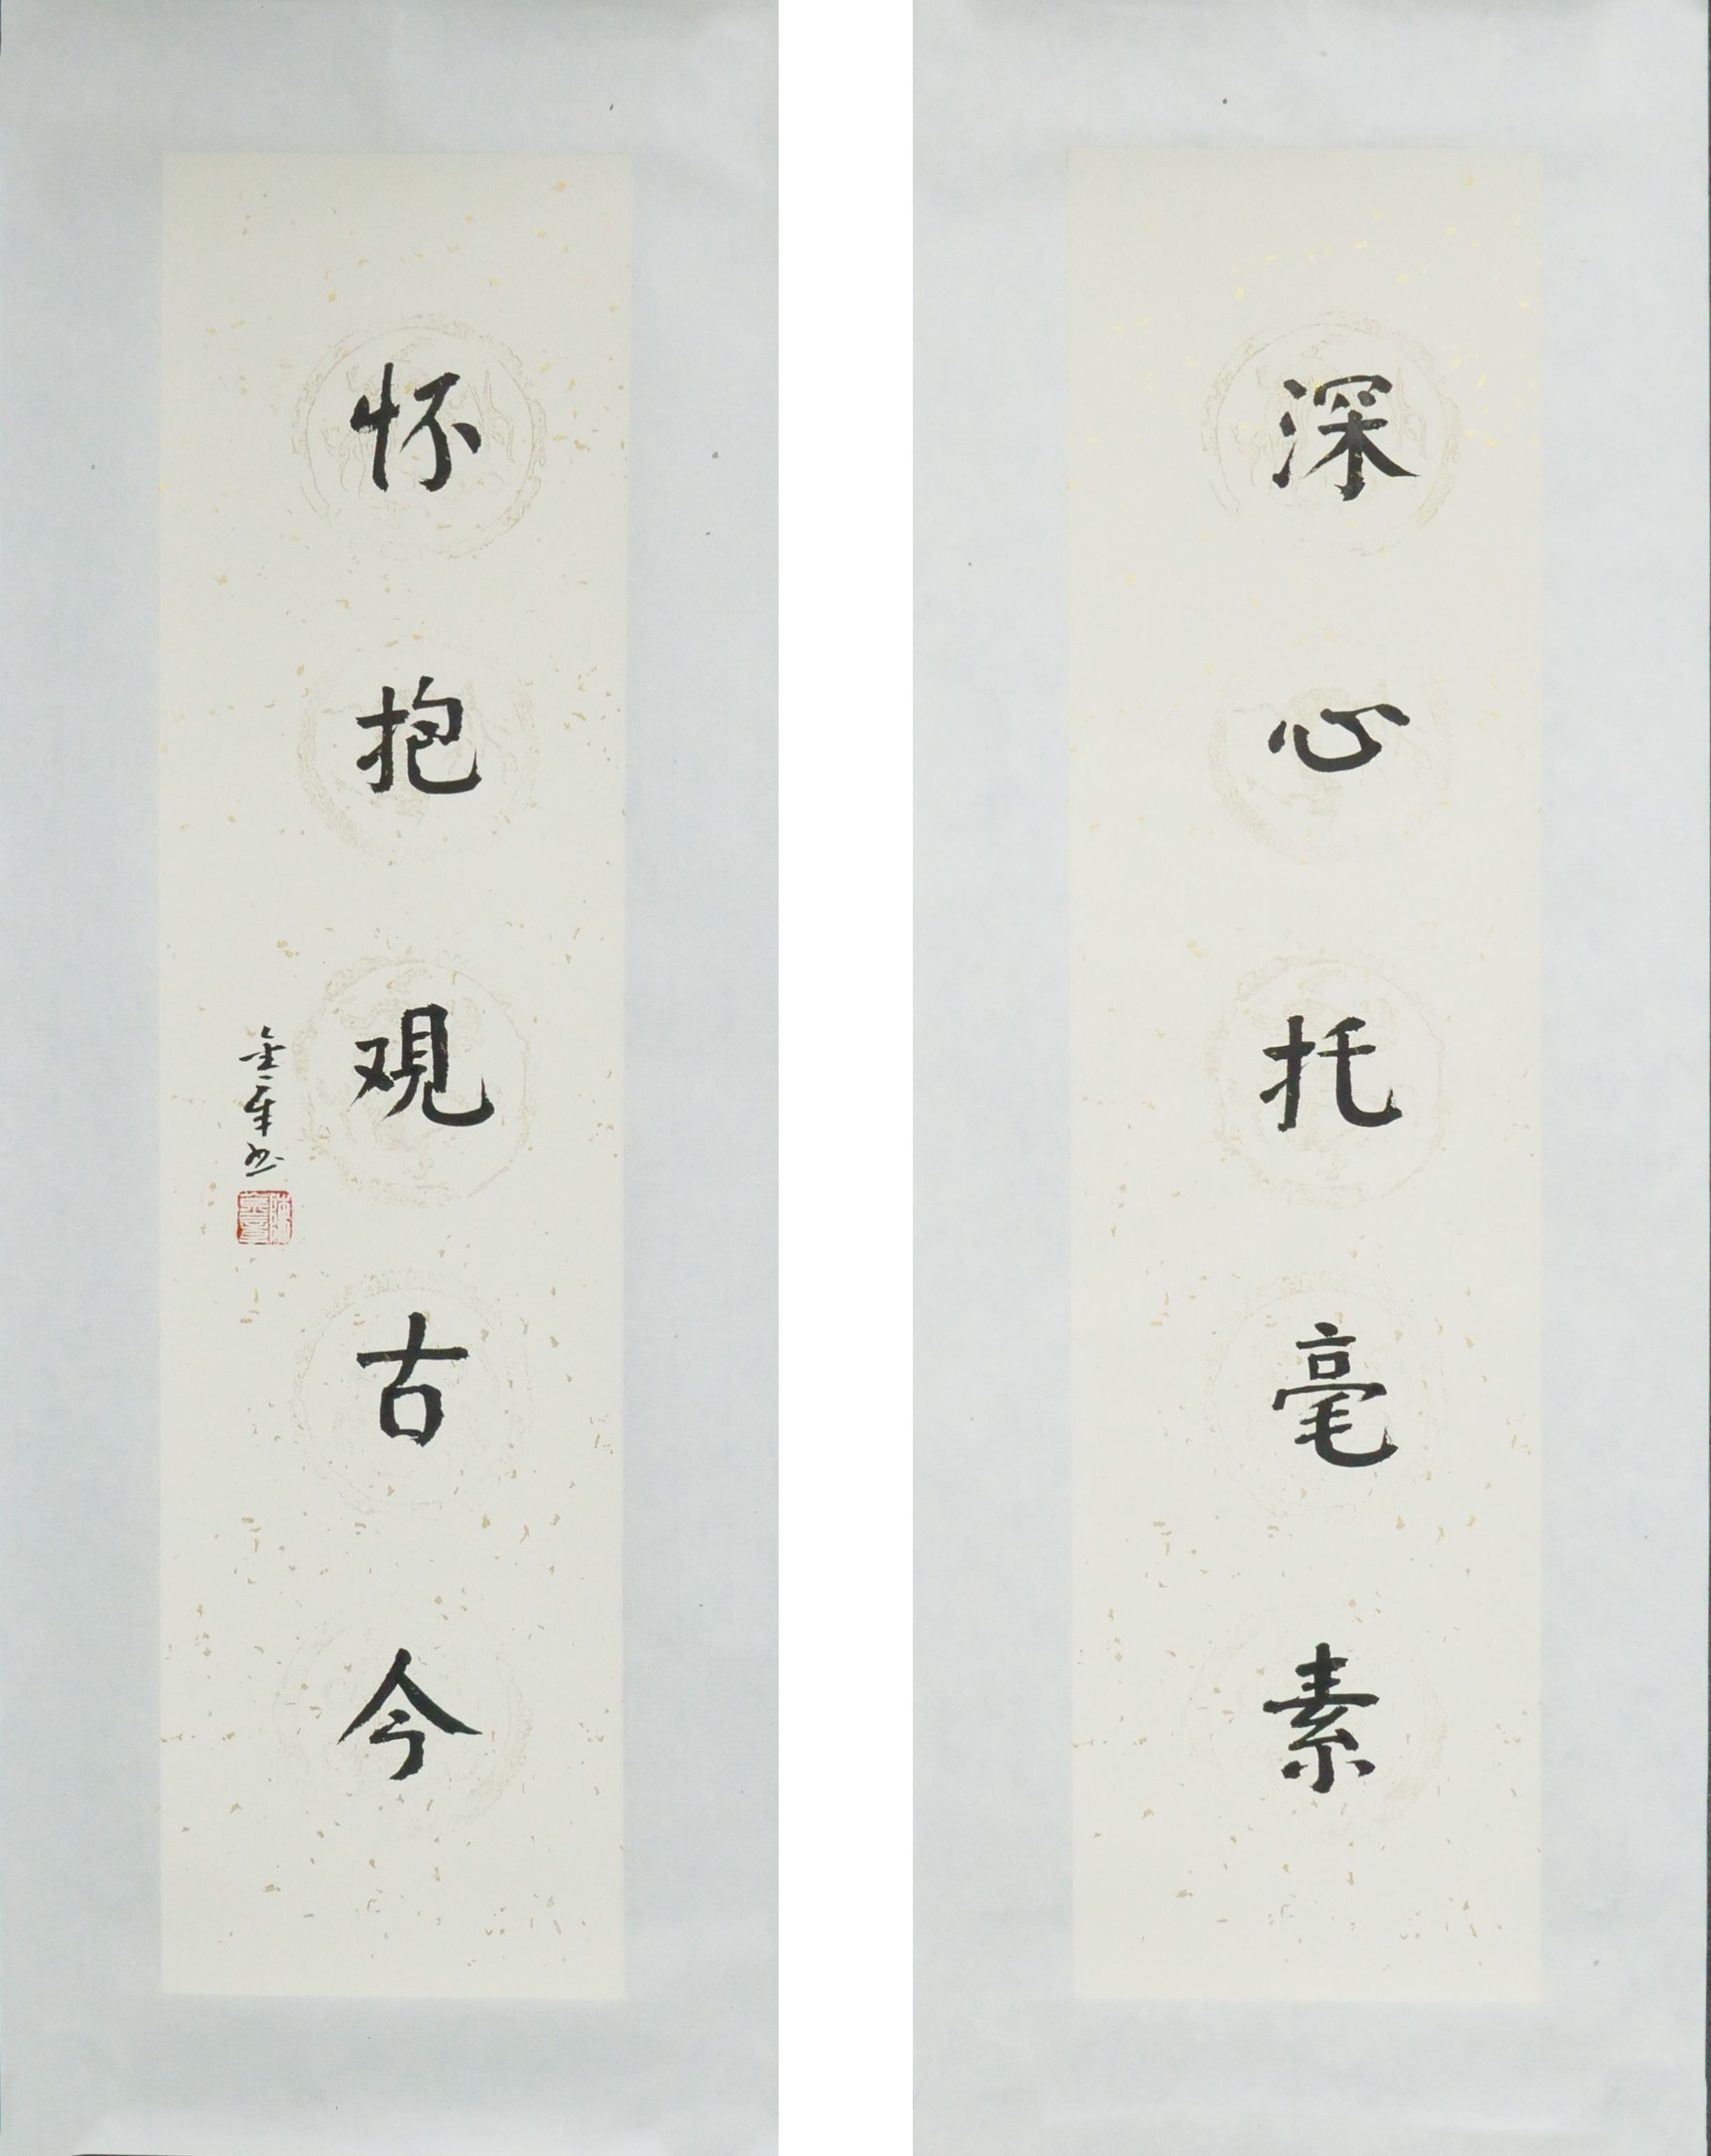 深心托毫素
怀抱观古今
金章书